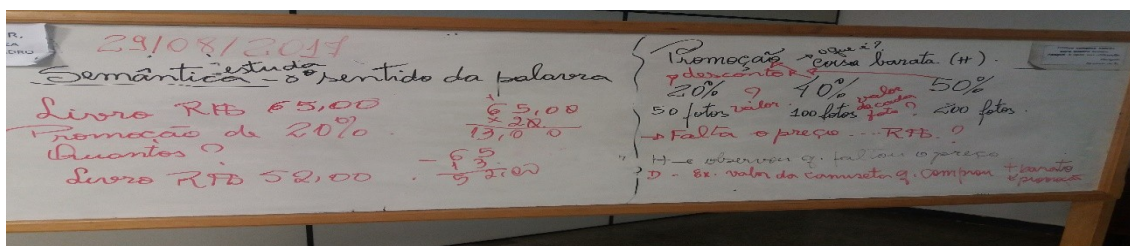 29/08/2017
Semântica - estudo do sentido da palavra
Livro R$ 65,00
Promoção de 20%.
Quantos?
Livro R$ 52,00.
65,00
x 20
13,00 0
- 65
13
52,00
Promoção → o que é?
coisa barata (H).
? desconto R$?
20% ? 40% 50%
50 fotos valor 100 fotos valor de cada foto? 200 fotos.
→ Falta o preço ... R$. ?
H → observou q. faltou o preço
D - Ex. valor da camiseta q. comprou + barato
promoção